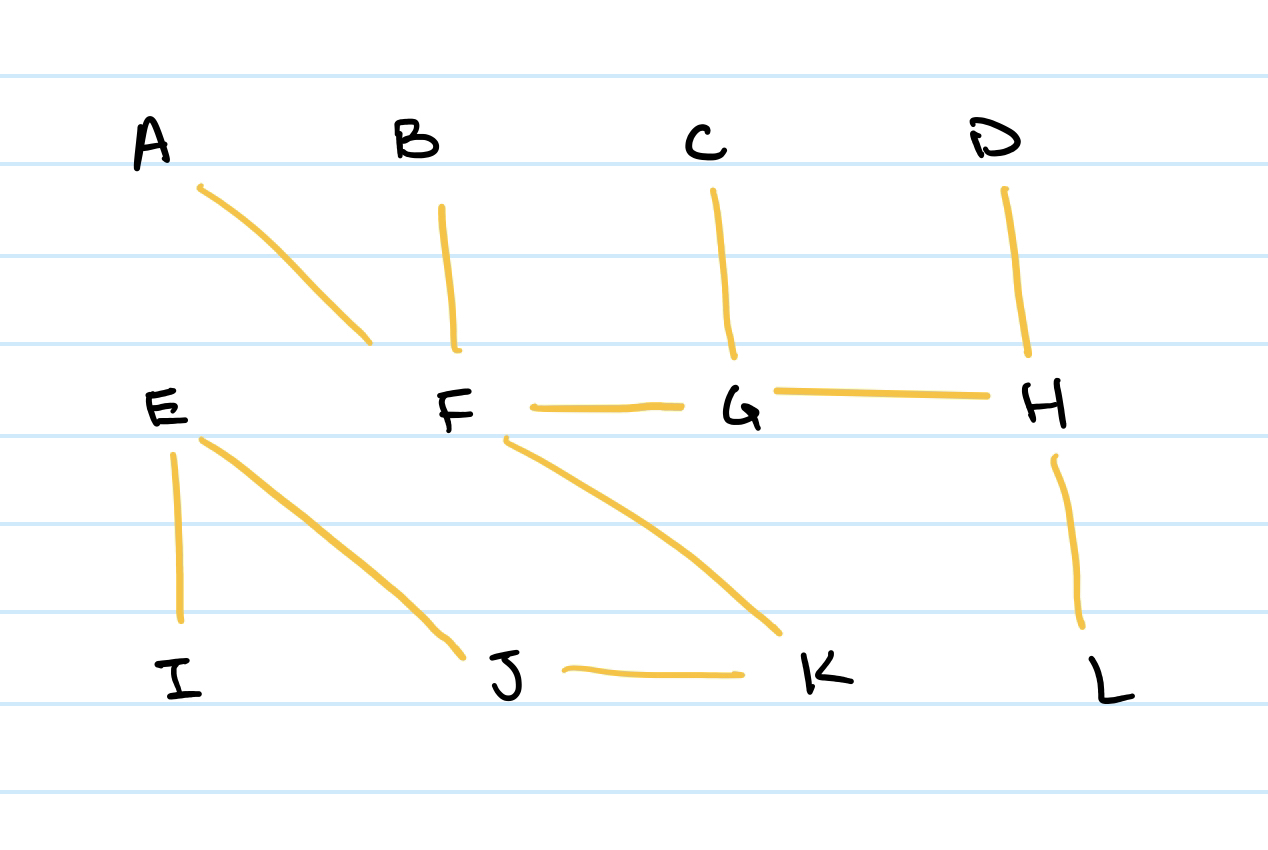 A B C D
E F G H
I J K L